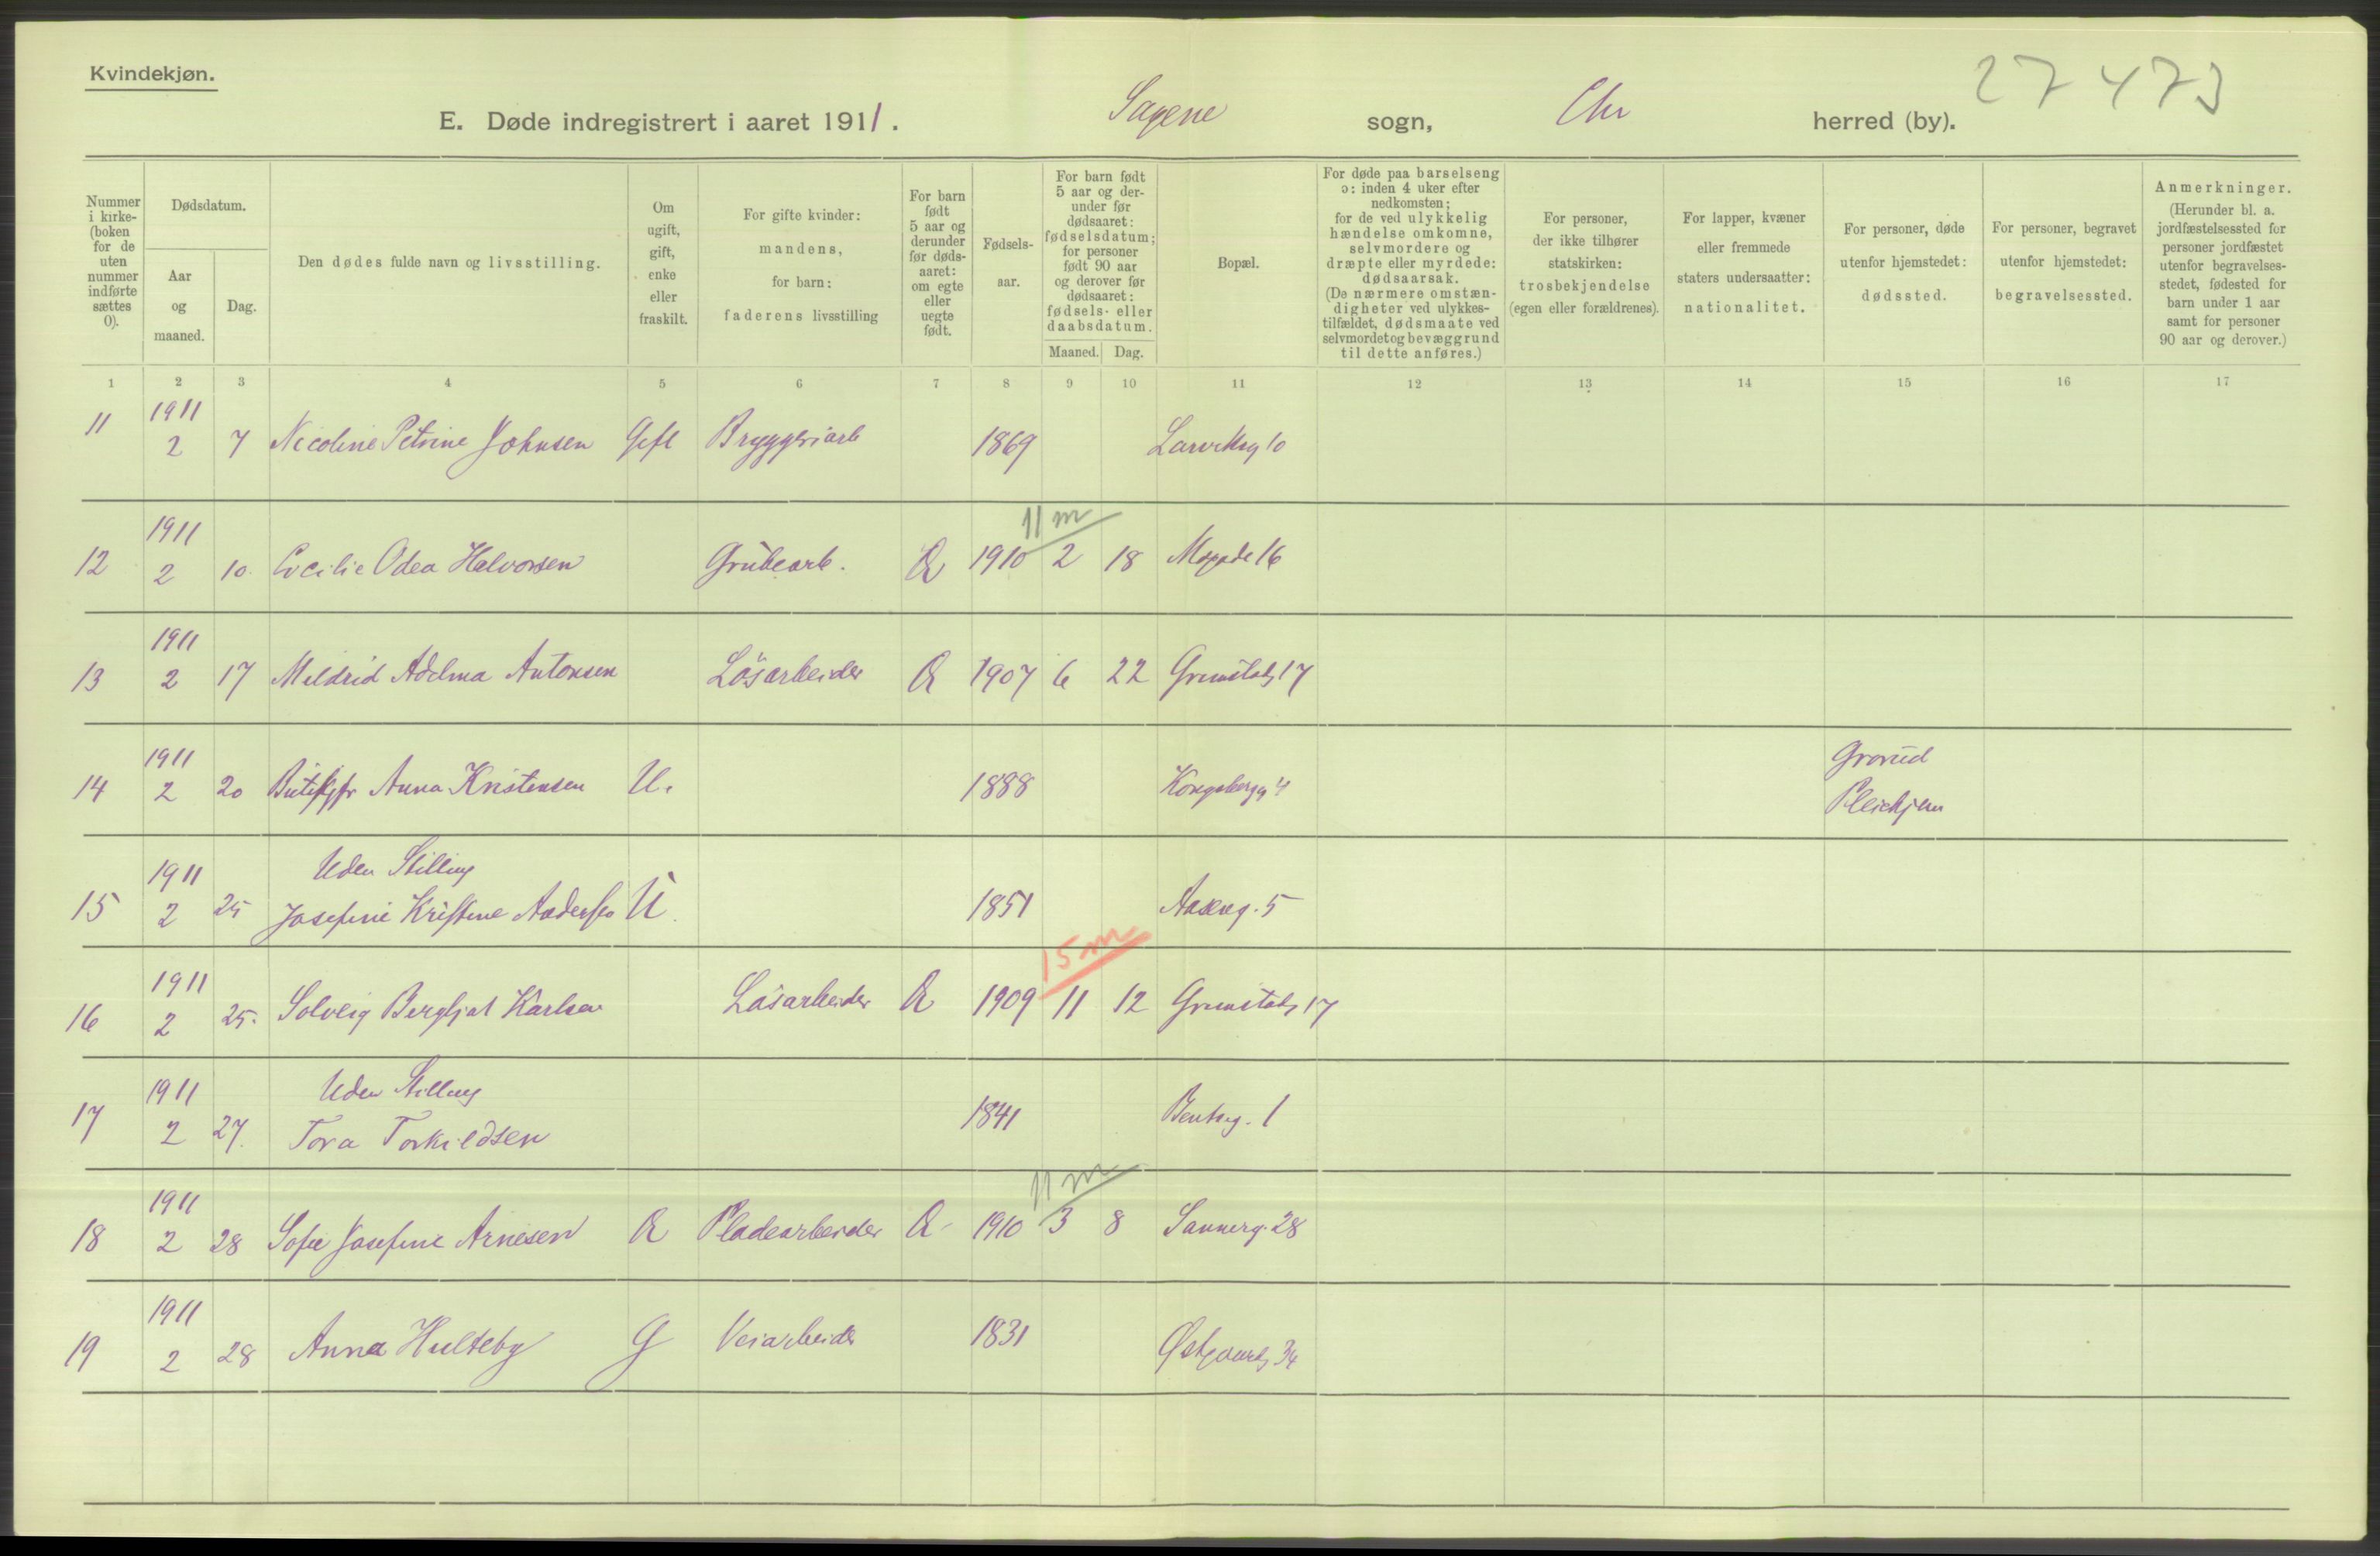 Kvindekjøn.
27473
E. Døde indregistrert i aaret 1911. Sagene sogn, Chr herred (by).
Nummer i kirke-(boken for de uten nummer indførte sættes 0).
Dødsdatum.
Aar og maaned.
Dag.
Den dødes fulde navn og livsstilling.
Om ugift, gift, enke eller fraskilt.
For gifte kvinder: mandens, for barn: faderens livsstilling
For barn født 5 aar og derunder før døds-aaret: om egte eller uegte født.
Fødsels-aar.
For barn født 5 aar og der-under før dødsaaret: fødselsdatum; for personer født 90 aar og derover før dødsaaret: fødsels- eller daabsdatum.
Maaned. Dag.
Bopæl.
For døde paa barselseng ɔ: inden 4 uker efter nedkomsten; for de ved ulykkelig hændelse omkomne, selvmordere og dræpte eller myrdede: dødsaarsak. (De nærmere omstæn-digheter ved ulykkes-tilfældet, dødsmaate ved selvmordet og bevæggrund til dette anføres.)
For personer, der ikke tilhører statskirken: trosbekjendelse (egen eller forældrenes).
For lapper, kvæner eller fremmede staters undersaatter: nationalitet.
For personer, døde utenfor hjemstedet: dødssted.
For personer, begravet utenfor hjemstedet: begravelsessted.
Anmerkninger. (Herunder bl. a. jordfæstelsessted for personer jordfæstet utenfor begravelses-stedet, fødested for barn under 1 aar samt for personer 90 aar og derover.)
1 2 3 4 5 6 7 8 9 10 11 12 13 14 15 16 17
1911
11 2 7 Nicoline Petrine Johnsen Gift Bryggeriarb 1869 Larviksg 10
1911 11 m
12 2 10. Cecilie Odea Halvorsen Grubearb. E 1910 2 18 16
1911
13 2 17 Meldrid Adelma Antonsen Løsarbeider E 1907 6 22 Grimstadg 17
1911 Grorud
14 2 20 Anna Kristensen U. 1888 Kongsbergg 4 Pleiehjem
1911 Uden Stilling
15 2 25 Josefine Kristine Andersen U. 1851 Aaseng. 5
1911 15 m
16 2 25. Solveig Bergljot Karlsen Løsarbeider E 1909 11 12 Grimstadg 17
1911 Uden Stilling
17 2 27. Tora Torkildsen 1841 Bentseg. 1
1911 11 m
18 2 28 Sofie Josefine Arnesen E Pladearbeider E 1910 3 8 Sannerg. 28
1911
19 2 28 Anna Hulteby G Veiarbeider 1831 Østgaardsg 34